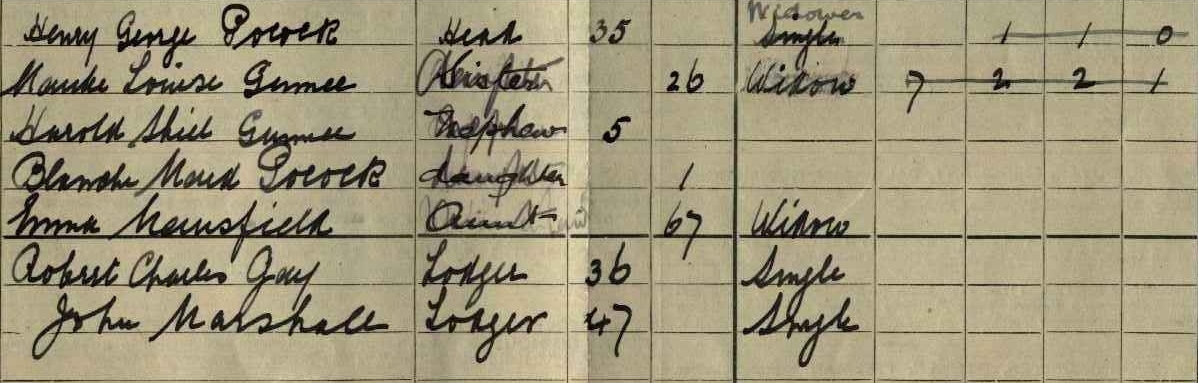 Widower
Henry George Pocock Head 35 Single 1 1 0
Louise Gurnee 26 Widow 7 2 2 1
Harold Gurnee Nephew 5
Blanche Maud Pocock daughter 1
Emma Mansfield Aunt 67 Widow
Robert Charles Gay Lodger 36 Single
John Marshall Lodger 47 Single